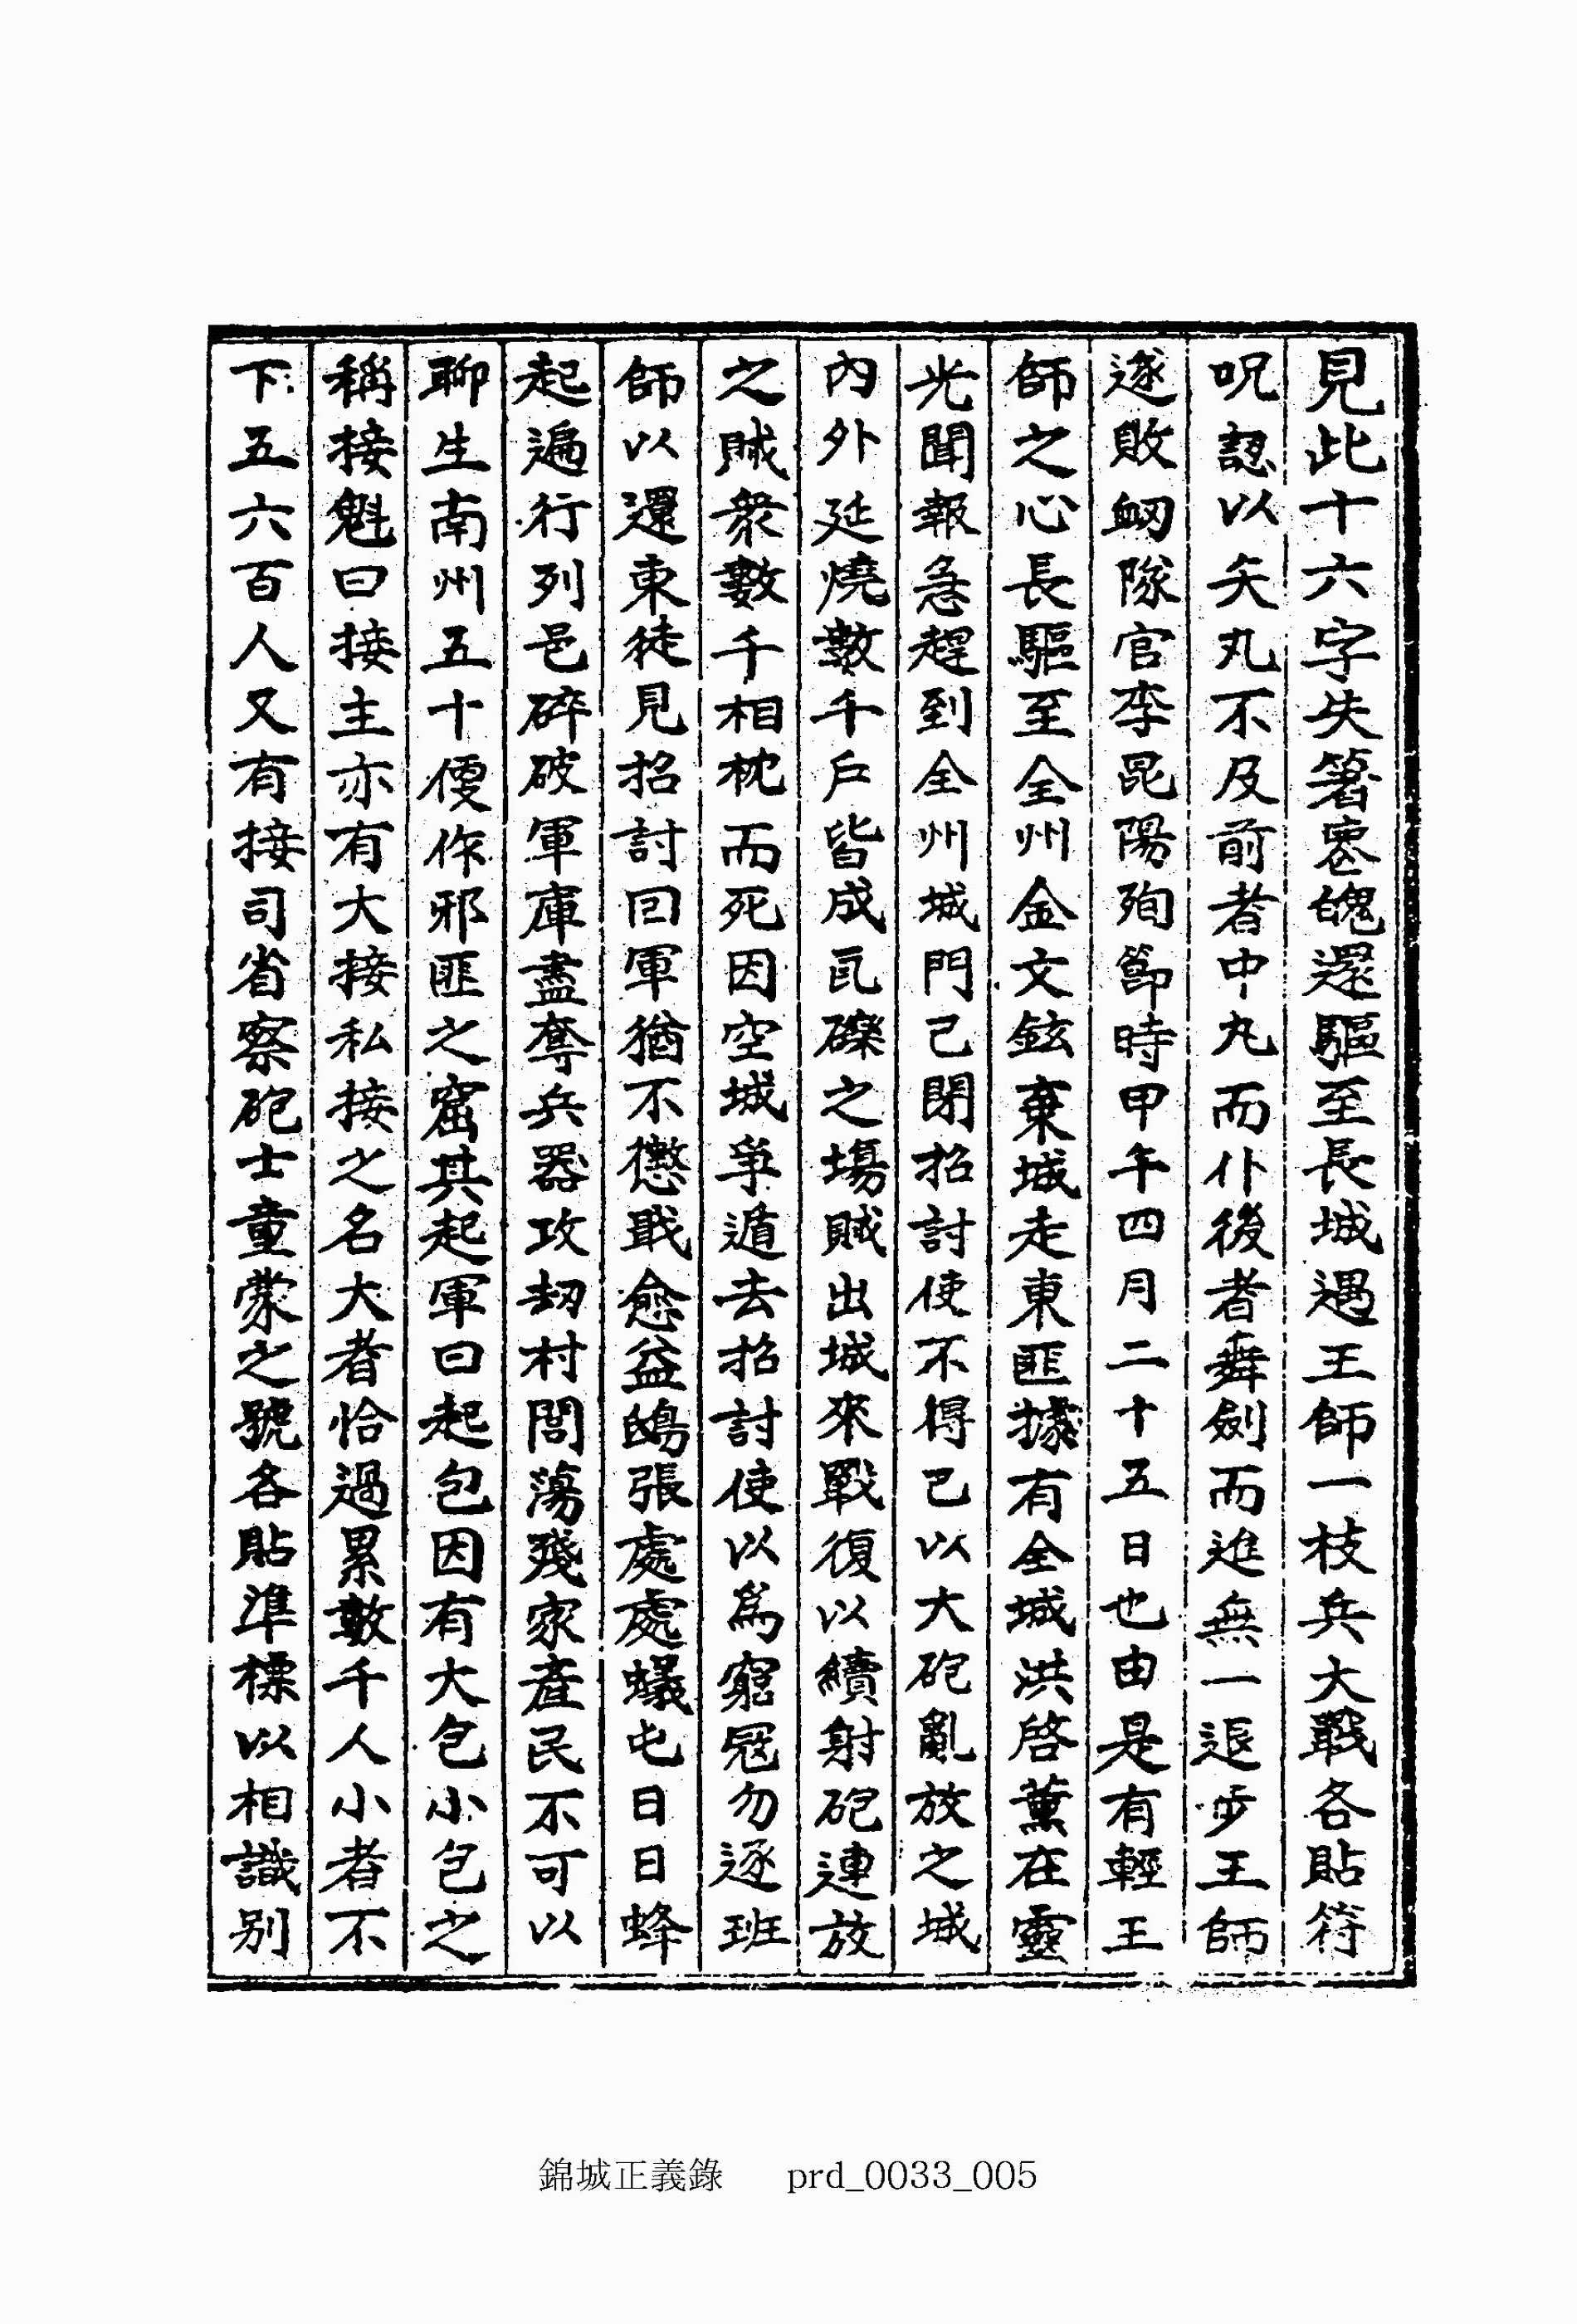 見此十六字失箸惡魄還驅至長城遇王師一枝兵大戰各貼符
呪認以矢丸不及前者中丸而仆後者舞劍而進無一退步王師
遂敗衂隊官李昆陽殉節時甲午四月二十五日也由是有輕王
師之心長驅至全州金文鉉棄城走東匪據有全城洪啓薰在靈
光聞報急趕到全州城門已閉招討使不得已以大砲亂放之城
內外延燒數千戶皆成瓦礫之場賊出城來戰復以續射砲連放
之賊衆數千相枕而死因空城爭遁去招討使以爲窮寇勿逐班
師以還東徒見招討回軍猶不懲戢愈益鴟張處處蟻屯日日蜂
起遍行列邑碎破軍庫盡奪兵器攻刼村閭蕩殘家產民不可以
聊生南州五十便作邪匪之窟其起軍曰起包因有大包小包之
稱接魁曰接主亦有大接私接之名大者恰過累數千人小者不
下五六百人又有接司省察砲士童蒙之號各貼準標以相識別
錦城正義錄 prd_0033_005